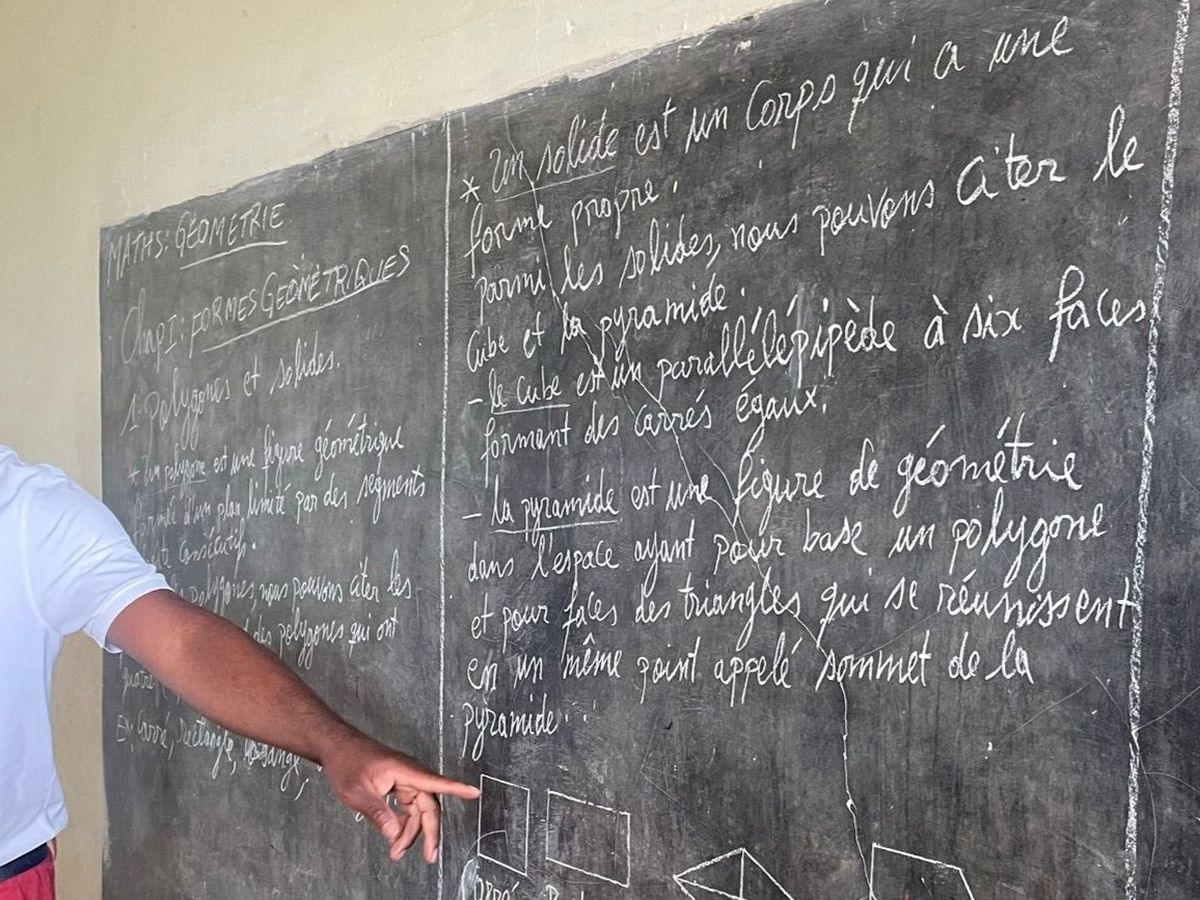 MATHS: GEOMETRIE
Chap I: FORMES GEOMÉTRIQUES
1. Polygones et solides.
* Un polygone est une figure géométrique
formée d'un plan limité par des segments
consécutifs.
polygones, nous pouvons citer les
des polygones qui ont
Ex: Carré, rectangle, losange,
* Un solide est un Corps qui a une
forme propre.
parmi les solides, nous pouvons Citer le
Cube et la pyramide.
- le Cube est un parallélépipède à six faces
formant des carrés égaux.
- la pyramide est une figure de géométrie
dans l'espace ayant pour base un polygone
et pour faces des triangles qui se réunissent
en un même point appelé sommet de la
pyramide.